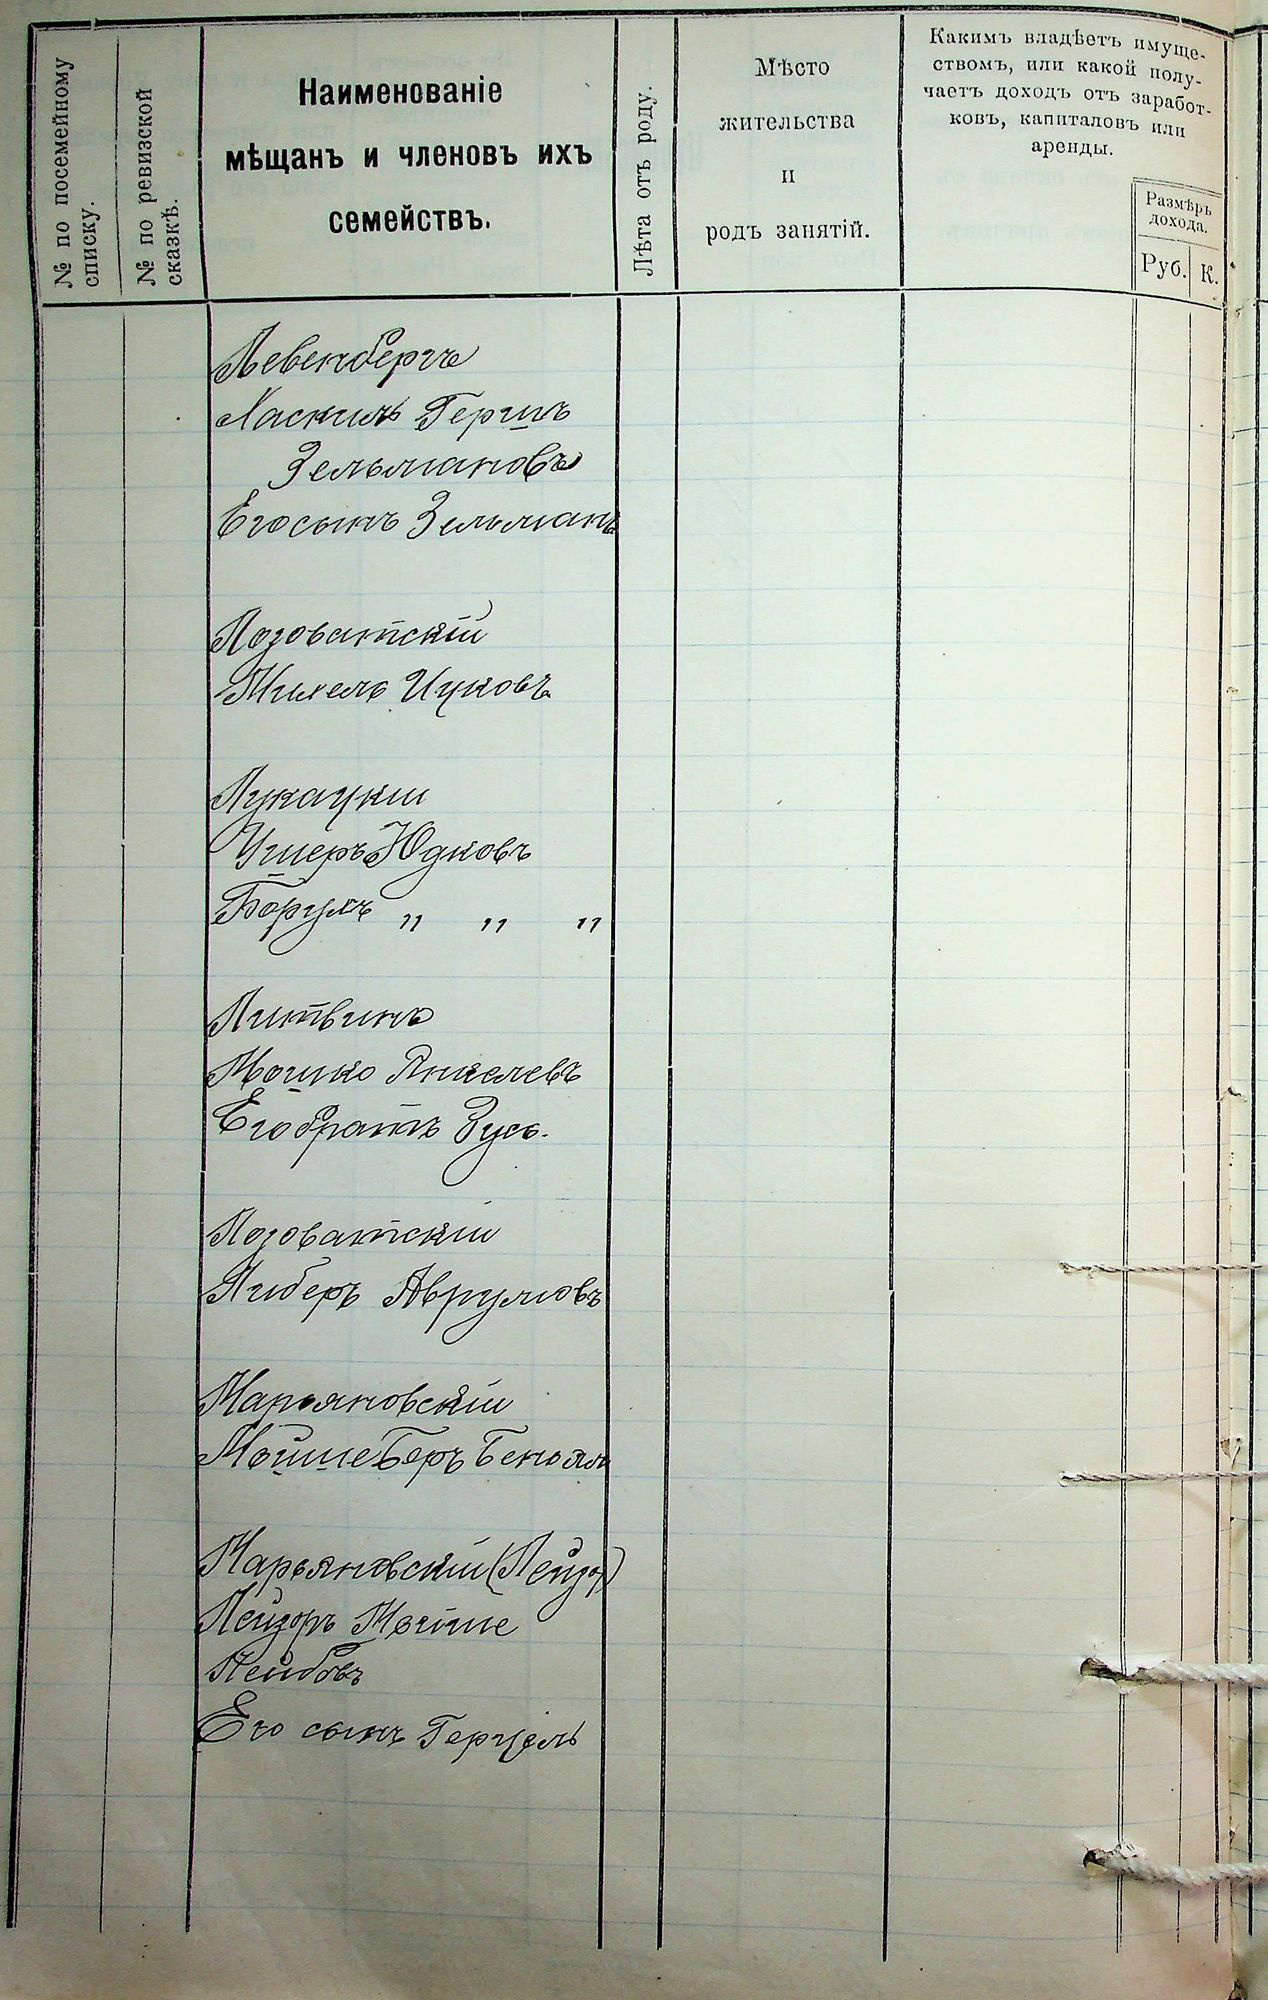 № по посемейному
списку.
№ по ревизской
сказкѣ.
Наименованіе
мѣщанъ и членовъ ихъ
семействъ.
Лѣта отъ роду.
Мѣсто
жительства
и
родъ занятій.
Какимъ владѣетъ имуще-
ствомъ, или какой полу-
чаетъ доходъ отъ заработ-
ковъ, капиталовъ или
аренды.
Размѣръ
дохода.
Руб. К.
Левенбергъ
Хаскиль Гершъ
Зельмановъ
Его сынъ Зельманъ
Лозоватскій
Михель Ицковъ
Лукацкій
Ушеръ Юдковъ
Борухъ " " "
Литвинъ
Мошко Янкелевъ
Его братъ Зусь.
Лозоватскій
Либеръ Аврумовъ
Марьяновскій
Мойше Беръ Беньям
Марьяновскій (Лейзор)
Лейзоръ Мойше
Лейбовъ
Его сынъ Герцель